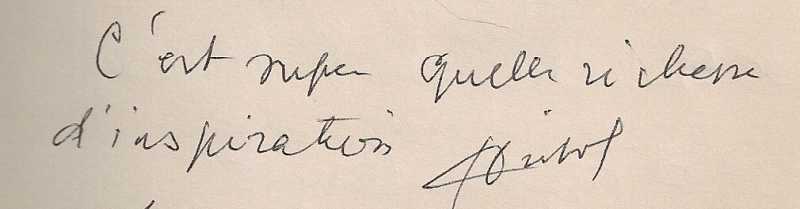 C'est super quelle richesse
d'inspiration